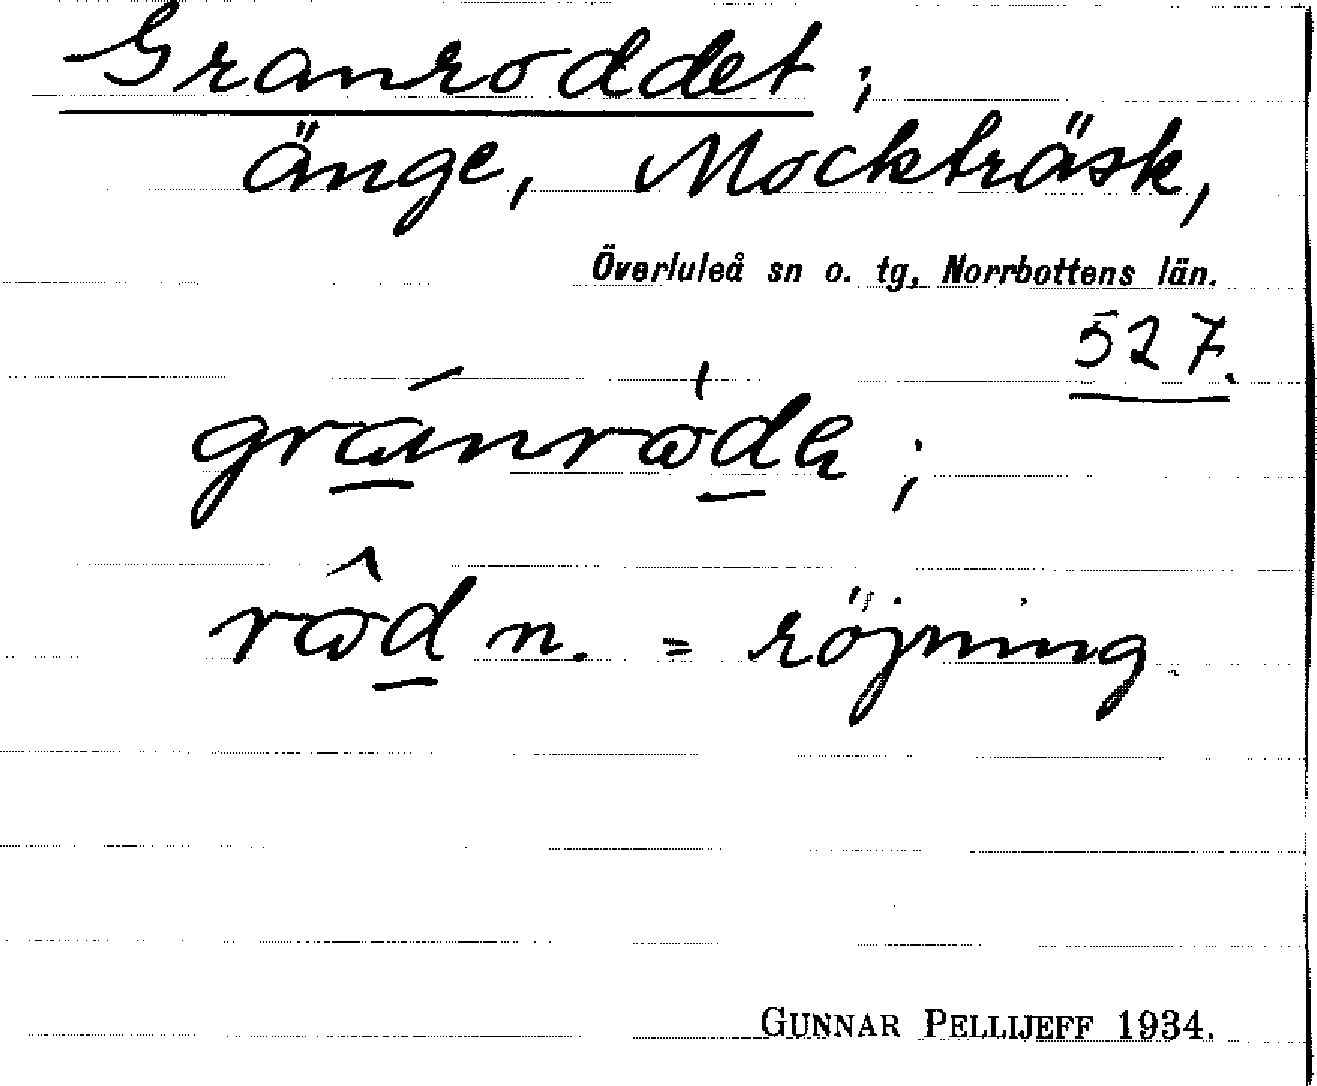 Granroddet;
änge, Mockträsk,
Överluleå sn o. tg, Norrbottens län.
527.
rôd n. = röjning.
GUNNAR PELLIJEFF 1934.